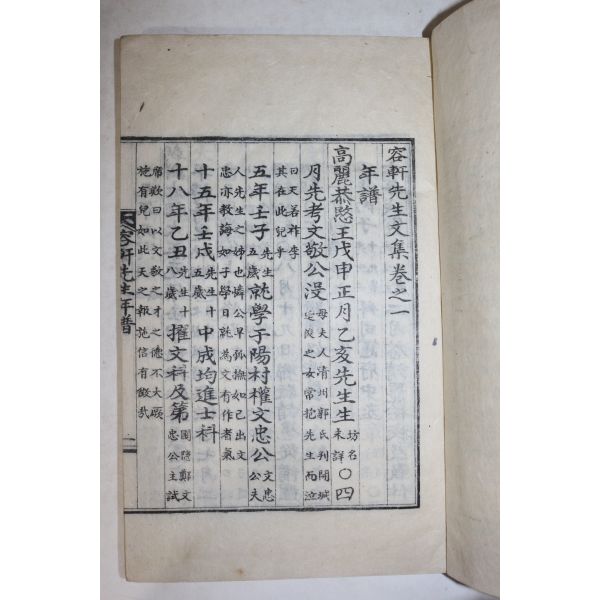 容軒先生文集卷之一
年譜
高麗恭愍王戊申正月乙亥先生生坊名未詳○四
月先考文敬公沒母夫人清州郭氏判開城延俊之女常抱先生而泣
曰天若祚李其在此兒乎
五年壬子先生五歲就學于陽村權文忠公文忠公夫
人先生之姊也憐公早孤撫如己出文忠亦敎誨如子學日就爲文有作者氣
十五年壬戌先生十五歲中成均進士科
十八年乙丑先生十八歲擢文科及第圃隱鄭文忠公主試
席歎曰以文敬之才之德不大厥施有兒如此天之報施信有徵哉
容軒先生年譜
一